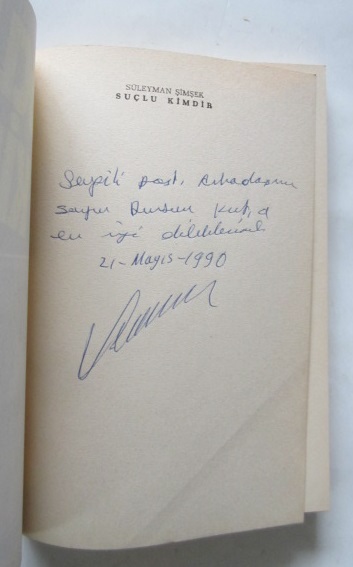 SÜLEYMAN ŞİMŞEK
SUÇLU KİMDİR
Sevgili Dost, Arkadaşım
Sayın Dursun Kut'a
en iyi dileklerimle
21-Mayıs-1990